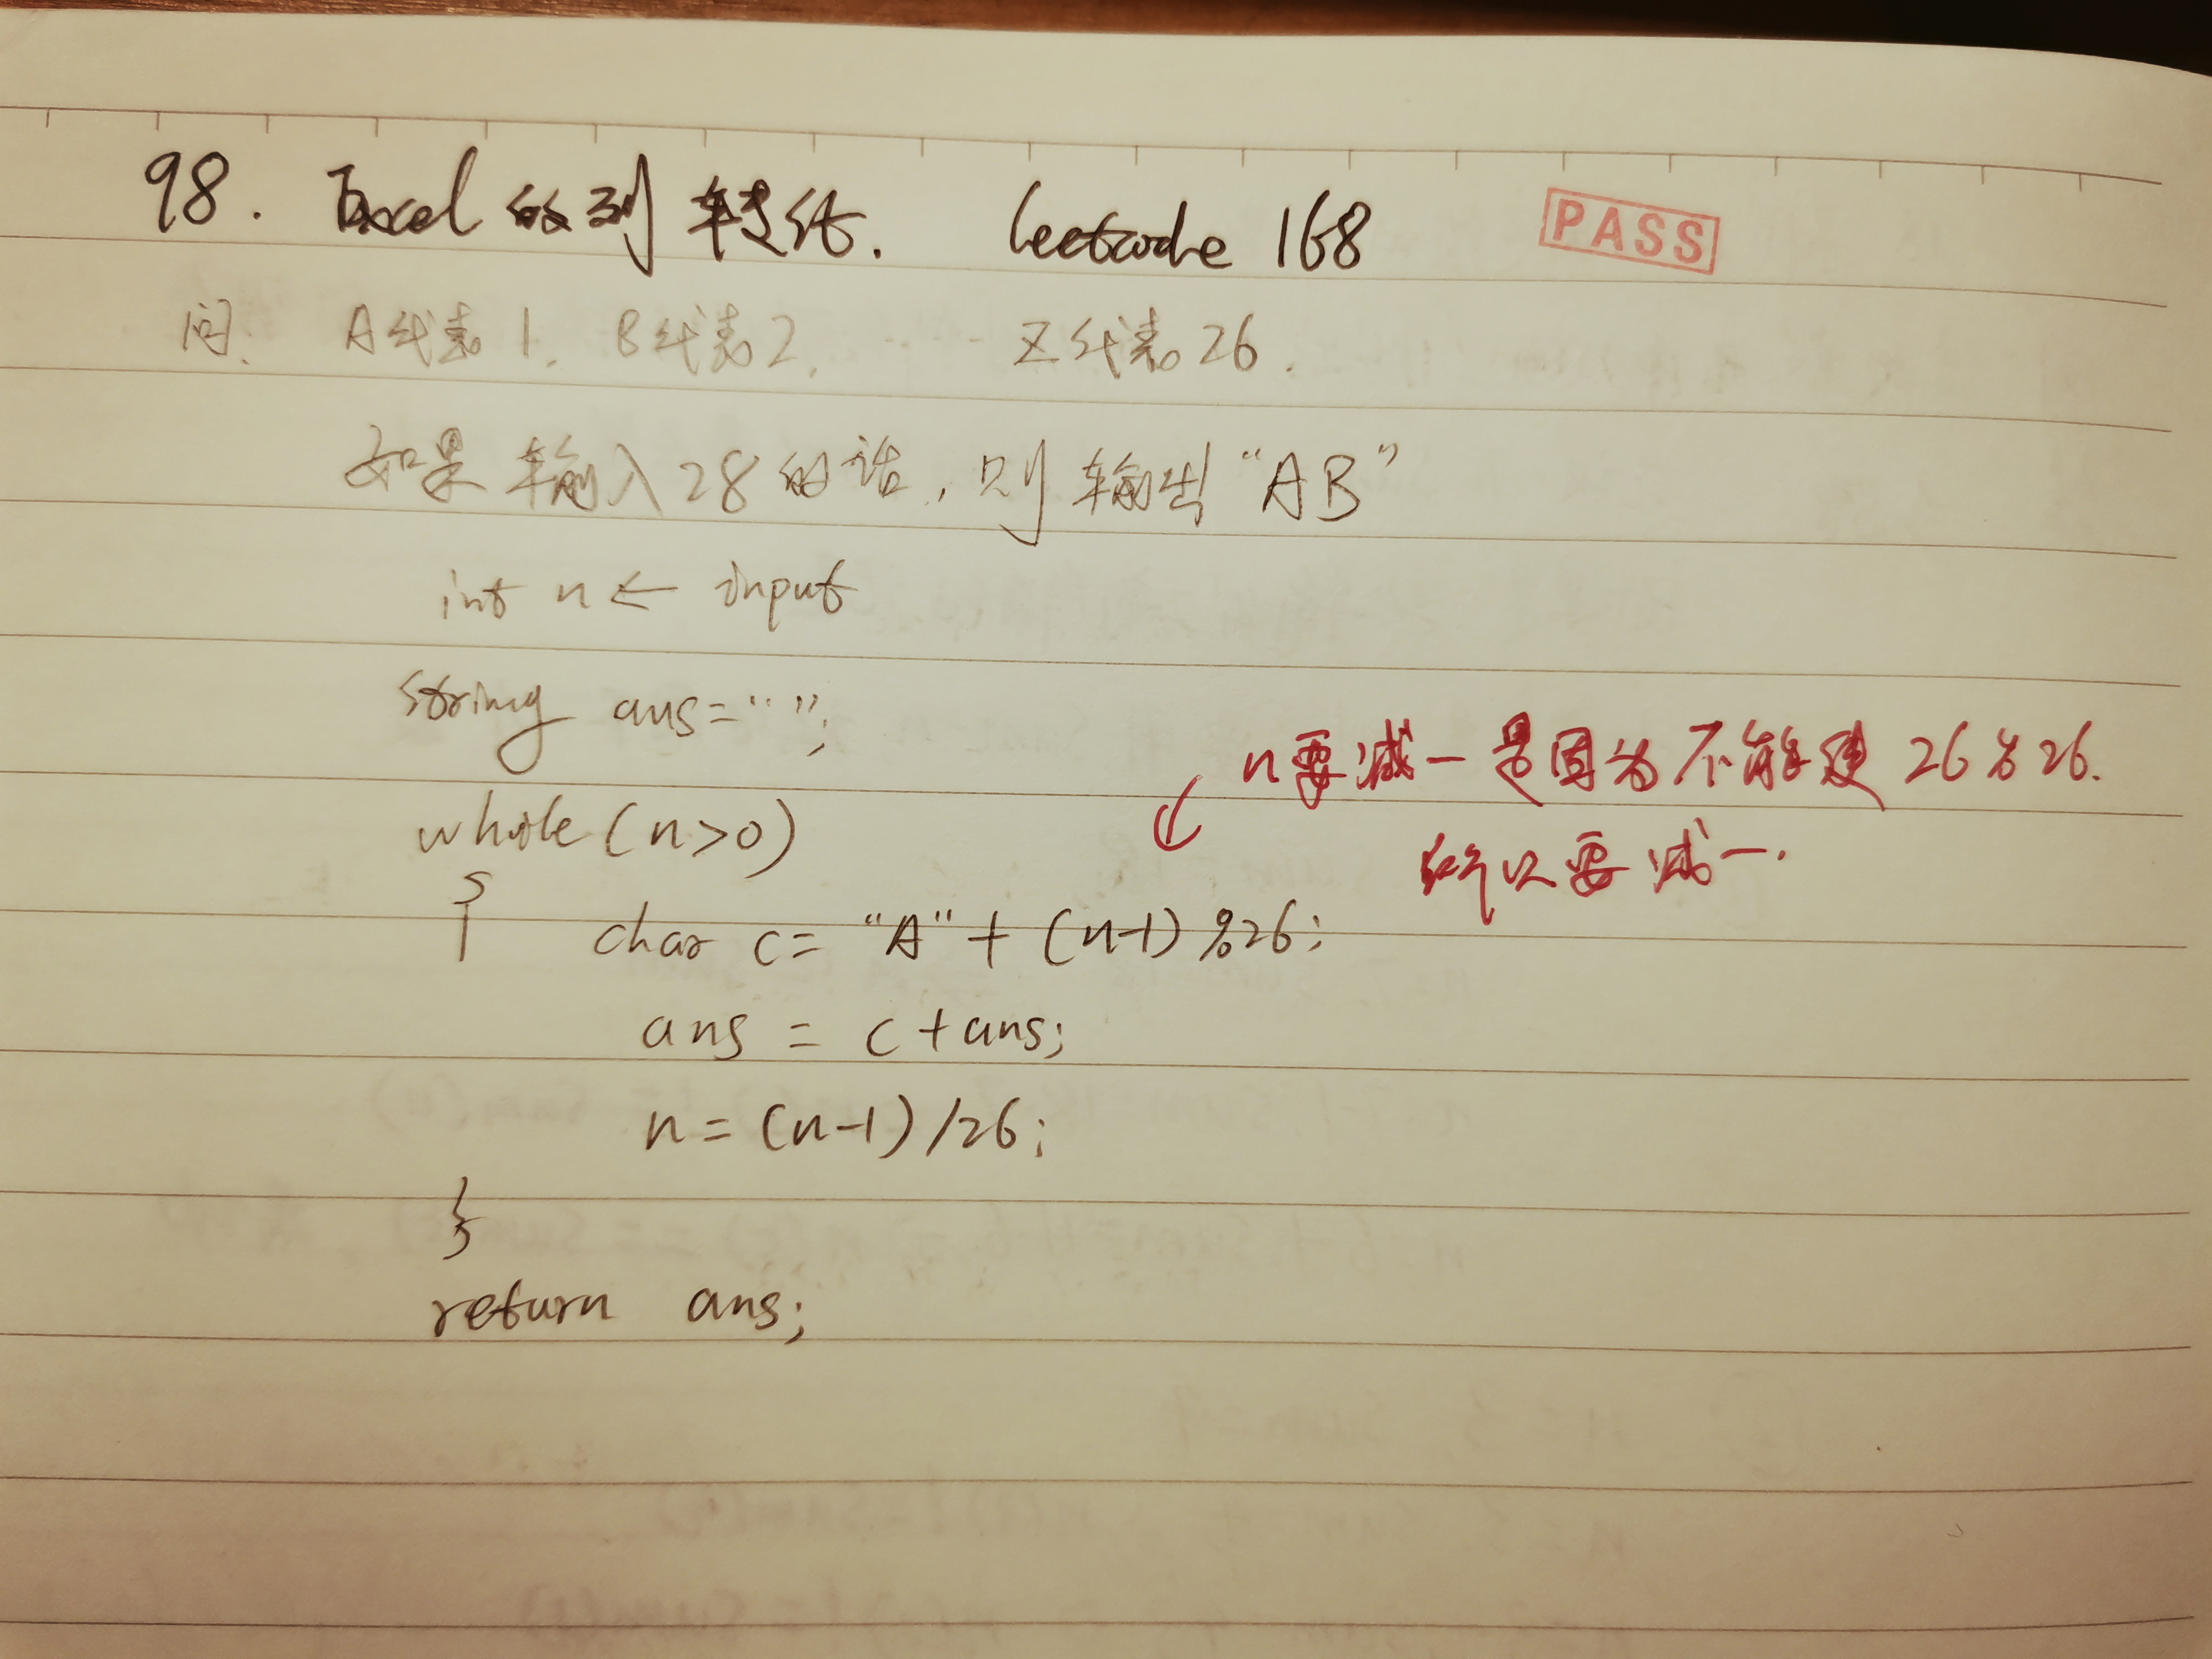 98. Excel的列转化. leetcode 168 PASS
问: A代表1, B代表2, ...... Z代表26.
如果输入28的话,则输出“AB”
int n ← input
string ans=“”;
n要减一是因为不能使26%26.
while(n>0)
所以要减一.
{
char c= “A”+(n-1)%26;
ans = c+ans;
n=(n-1)/26;
}
return ans;